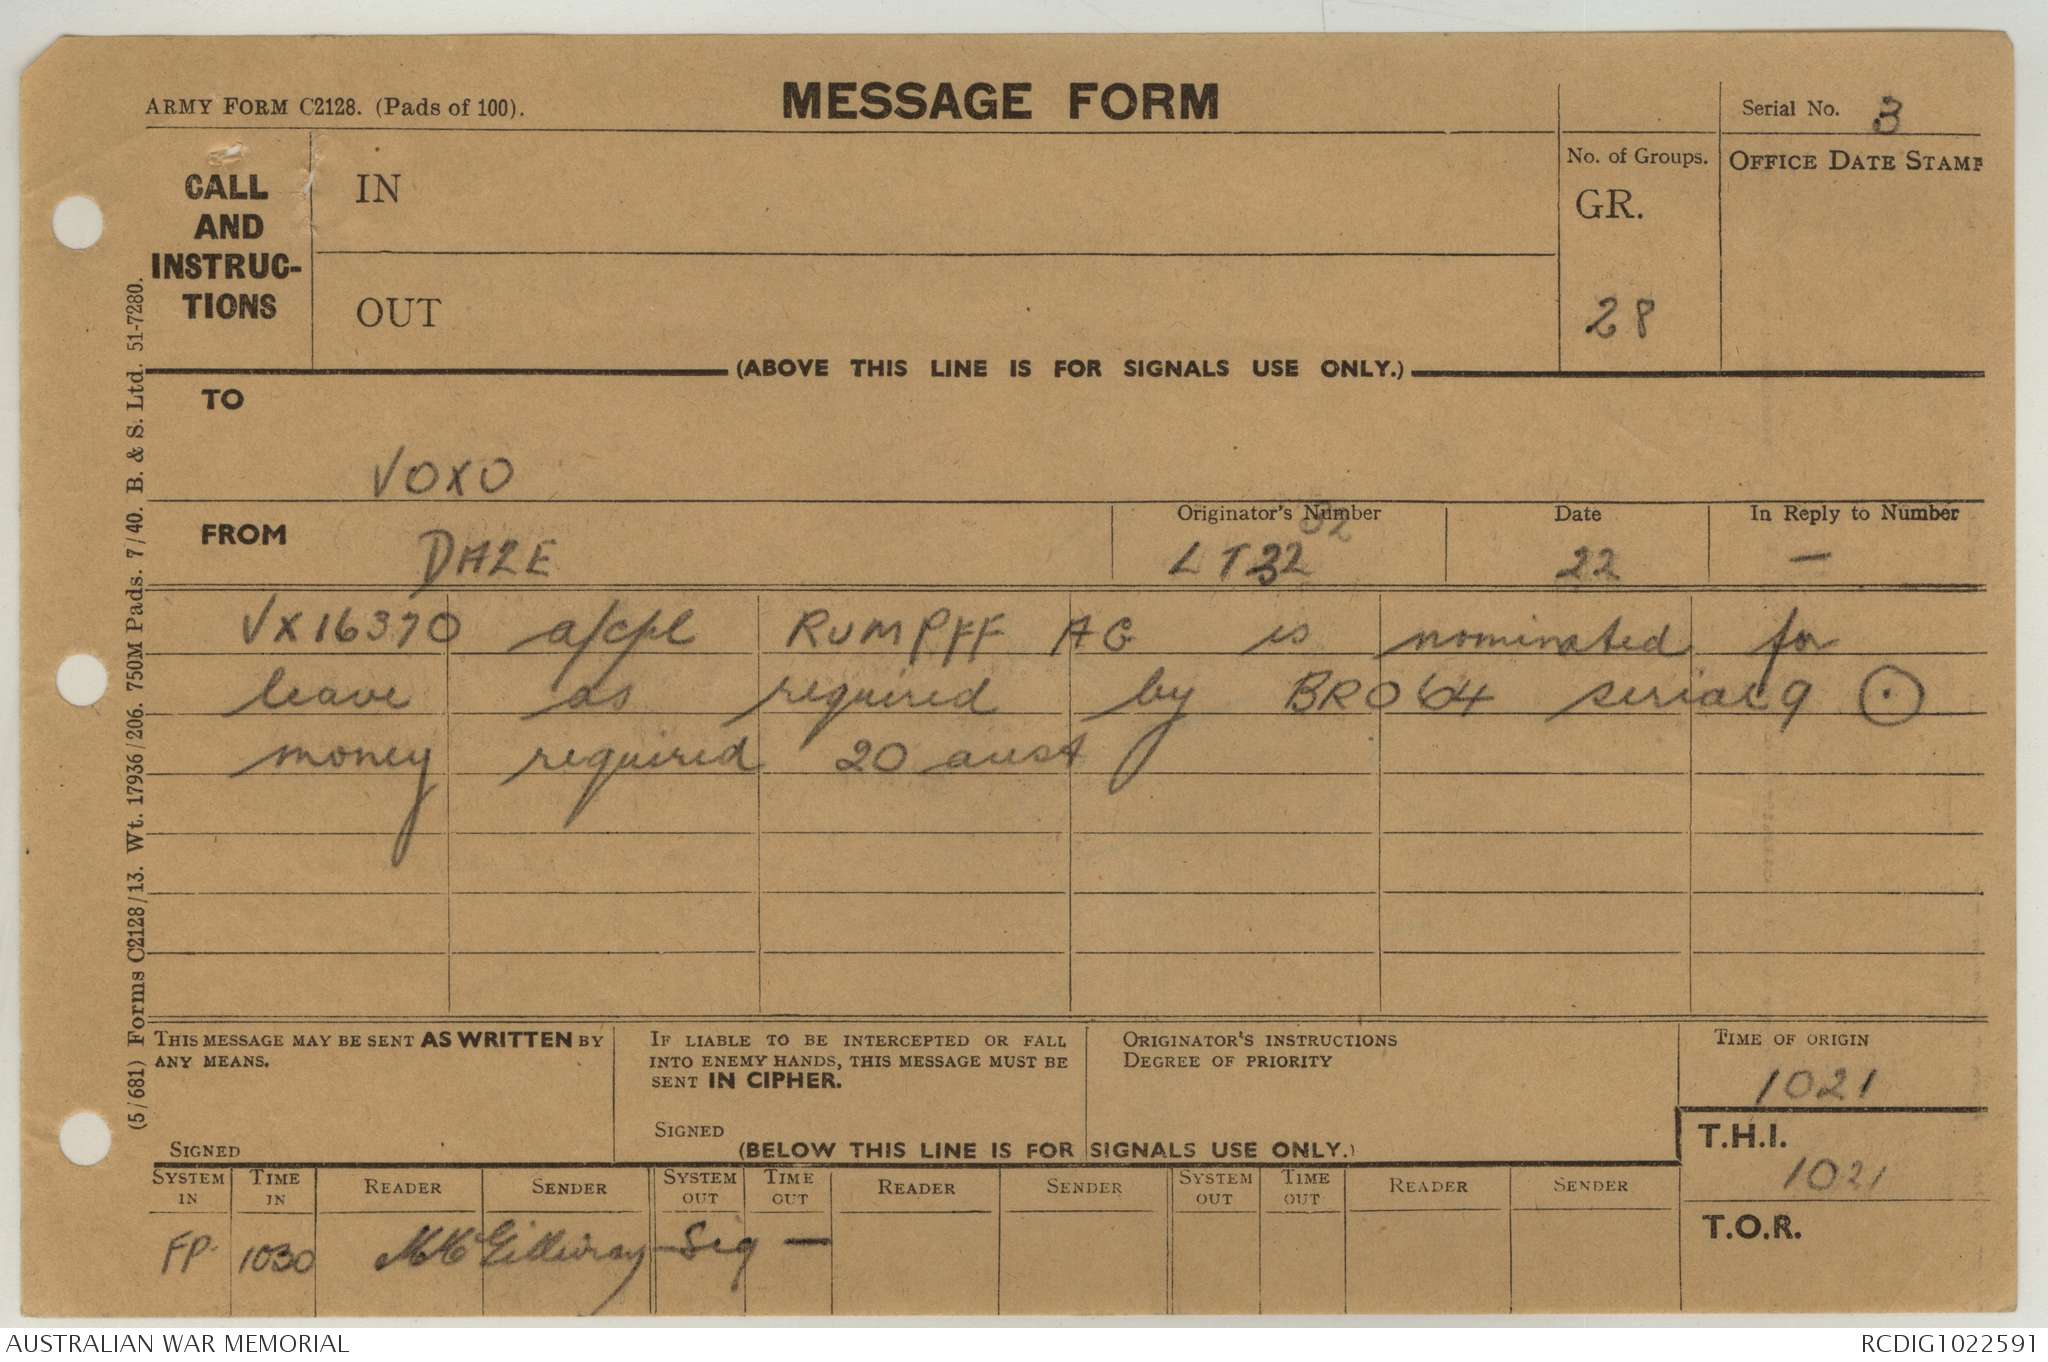 ARMY FORM C2128. (Pads of 100).
MESSAGE FORM
Serial No. 3
CALL
AND
INSTRUC-
TIONS
IN
OUT
No. of Groups.
GR.
28
OFFICE DATE STAMP
(ABOVE THIS LINE IS FOR SIGNALS USE ONLY.)
TO
VOXO
FROM
DAZE
Originator's Number
32
LT32
Date
22
In Reply to Number
—
VX16370 a/cpl RUMPFF AG is nominated for
leave as required by BRO64 serial 9 ⊙
money required 20 aust
THIS MESSAGE MAY BE SENT AS WRITTEN BY
ANY MEANS.
SIGNED
IF LIABLE TO BE INTERCEPTED OR FALL
INTO ENEMY HANDS, THIS MESSAGE MUST BE
SENT IN CIPHER.
SIGNED
ORIGINATOR'S INSTRUCTIONS
DEGREE OF PRIORITY
TIME OF ORIGIN
1021
(BELOW THIS LINE IS FOR SIGNALS USE ONLY.)
T.H.I.
1021
T.O.R.
SYSTEM IN TIME IN READER SENDER SYSTEM OUT TIME OUT READER SENDER SYSTEM OUT TIME OUT READER SENDER
FP. 1030 McGillivray Sig —
(5/681) Forms C2128/13. Wt. 17936/206. 750M Pads. 7/40. B. & S. Ltd. 51-7280.
AUSTRALIAN WAR MEMORIAL
RCDIG1022591